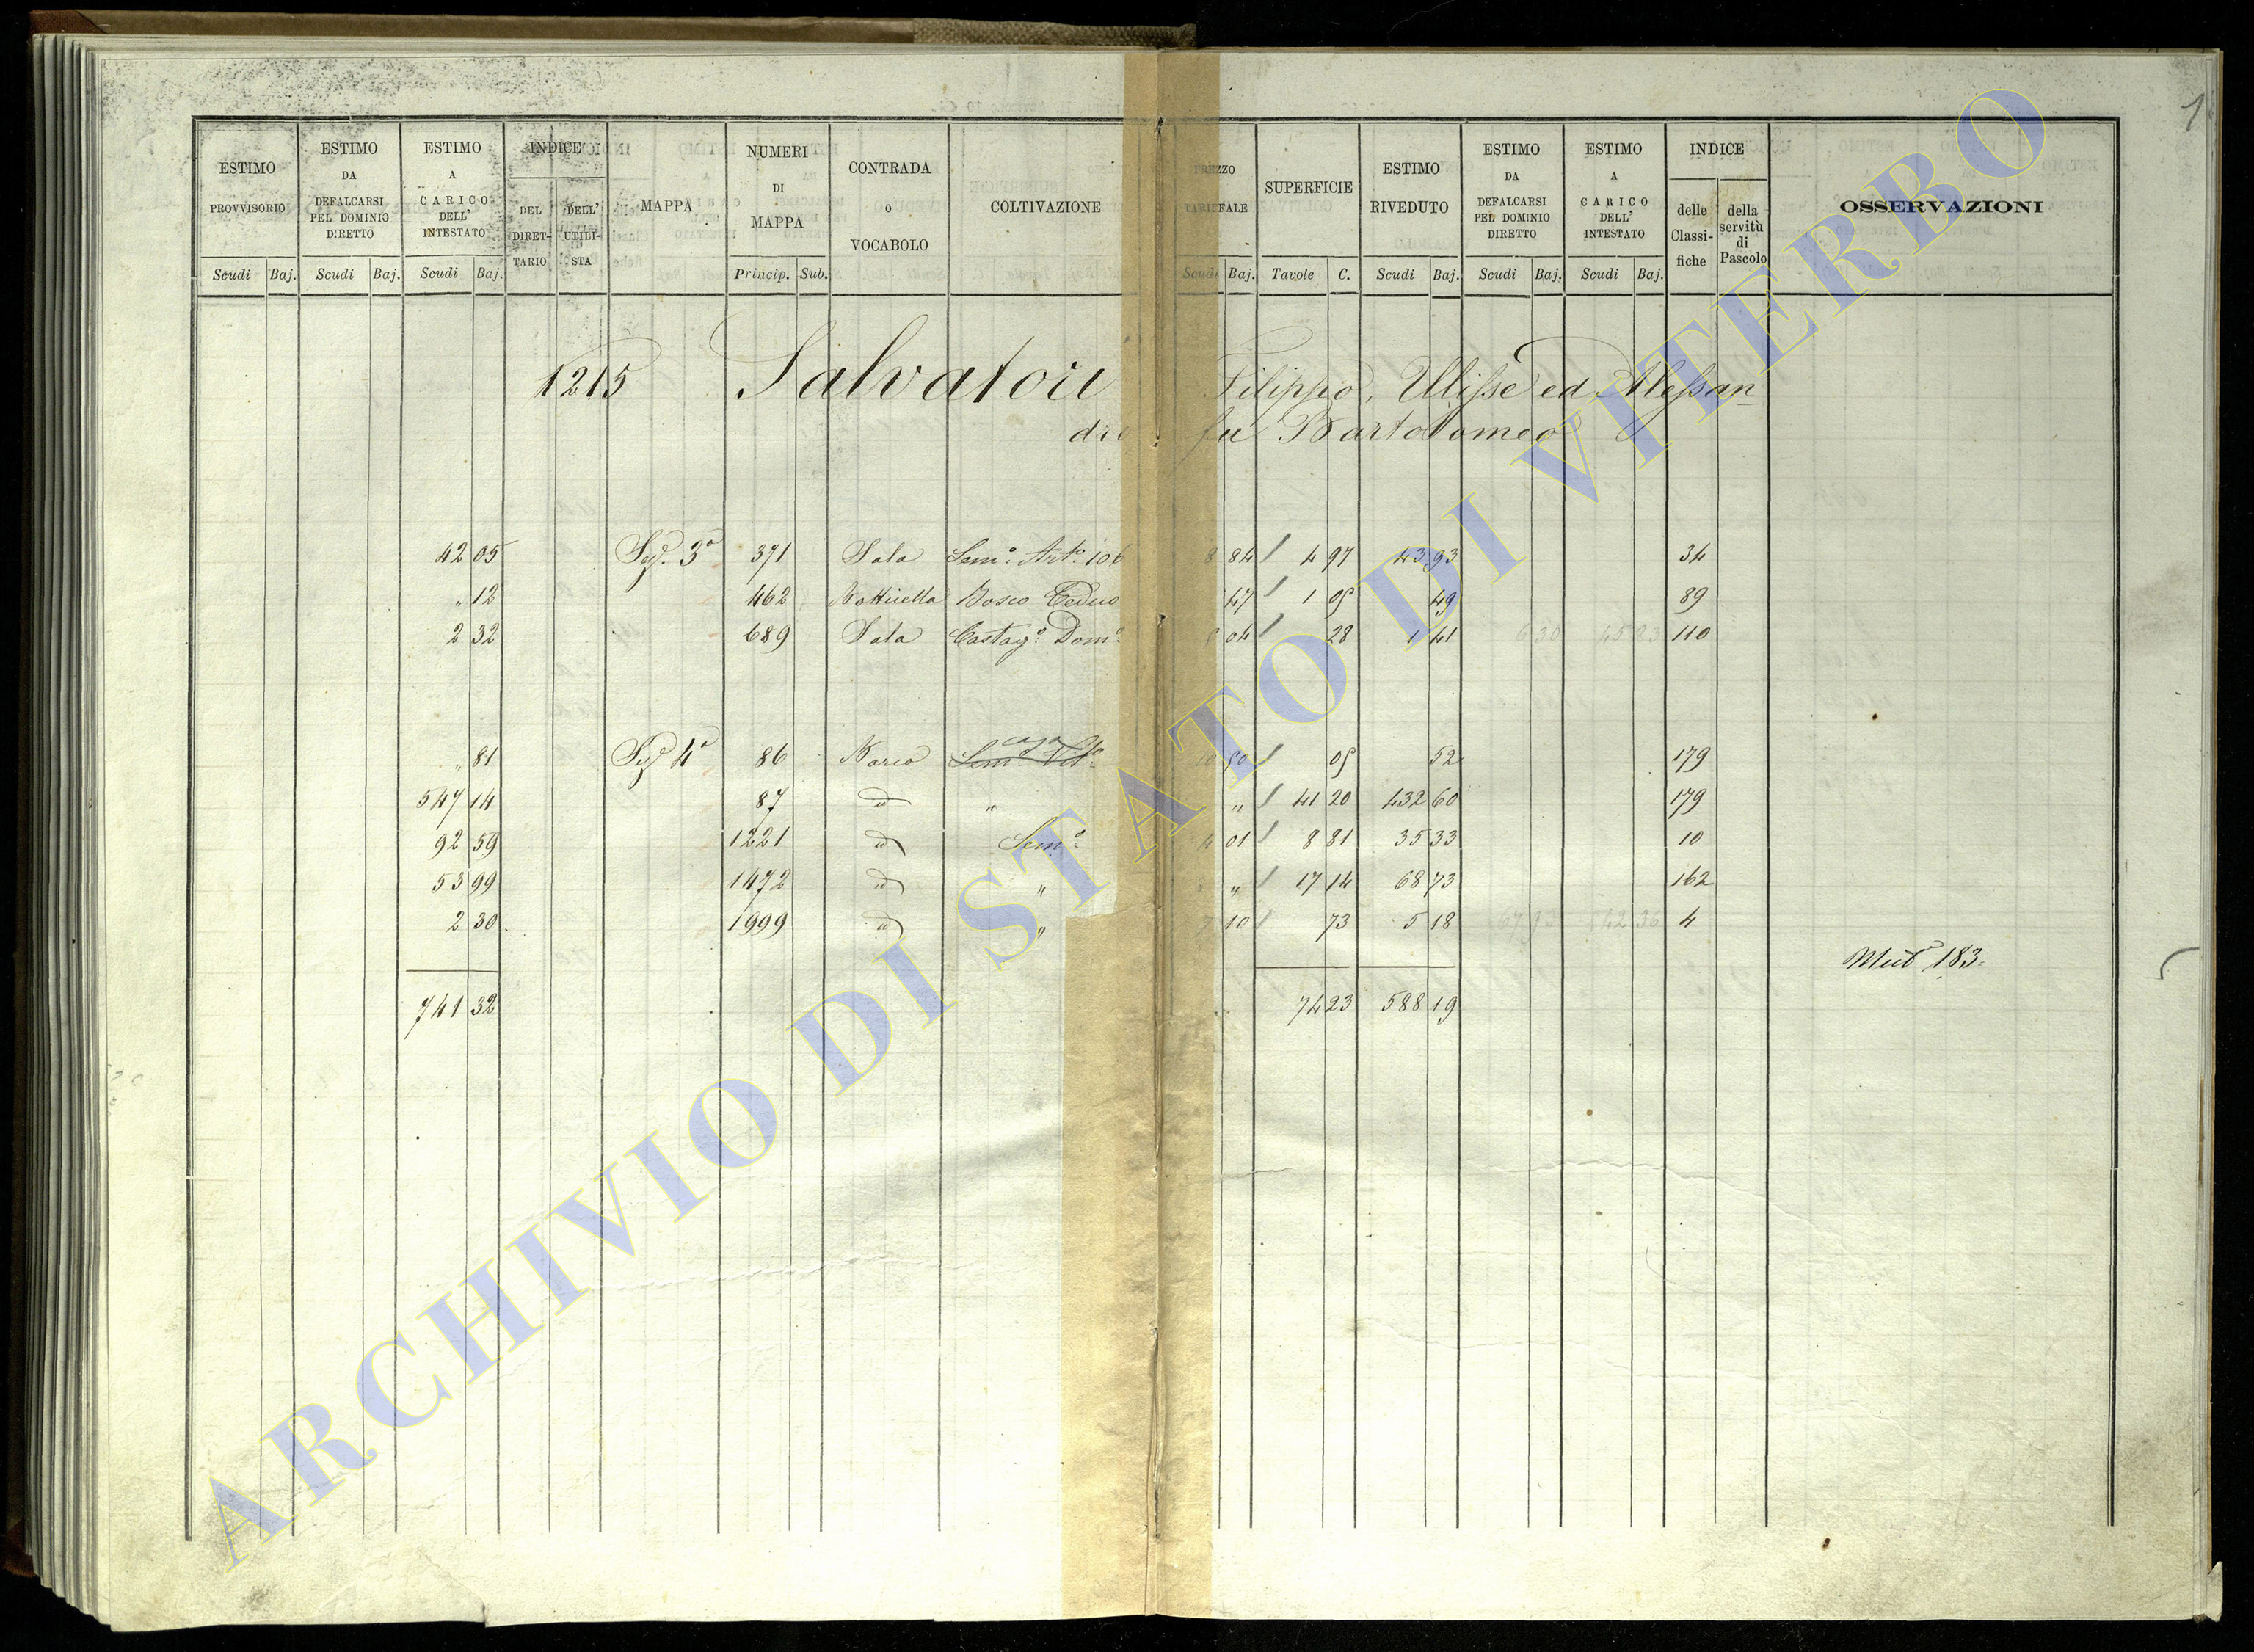 1
ESTIMO PROVVISORIO Scudi Baj.
ESTIMO DA DEFALCARSI PEL DOMINIO DIRETTO Scudi Baj.
ESTIMO A CARICO DELL' INTESTATO Scudi Baj.
INDICE DEL DIRETTARIO DELL' UTILISTA
MAPPA
NUMERI DI MAPPA Princip. Sub.
CONTRADA O VOCABOLO
COLTIVAZIONE
PREZZO TARIFFALE Scudi Baj.
SUPERFICIE Tavole C.
ESTIMO RIVEDUTO Scudi Baj.
ESTIMO DA DEFALCARSI PEL DOMINIO DIRETTO Scudi Baj.
ESTIMO A CARICO DELL' INTESTATO Scudi Baj.
INDICE delle Classifiche della servitù di Pascolo
OSSERVAZIONI
1215 Salvatori Filippo, Ulisse ed Alessan
dro fu Bartolomeo
42 05 Sez. 3a 371 Sala Semo Arto 106 8 84 4 97 43 93 34
" 12 462 Bosco Ceduo 47 1 05 49 89
2 32 689 Sala Castago Domo 04 28 1 41 6 30 45 83 110
" 81 Sez 4a 86 casa Semo Vito 10 50 05 52 179
547 14 87 id " " 41 20 432 60 179
92 59 1221 id Semo 4 01 8 81 35 33 10
53 99 1472 id " " 17 14 68 73 162
2 30 1999 id " 7 10 73 5 18 4
Mut 183
741 32 74 23 588 19
ARCHIVIO DI STATO DI VITERBO